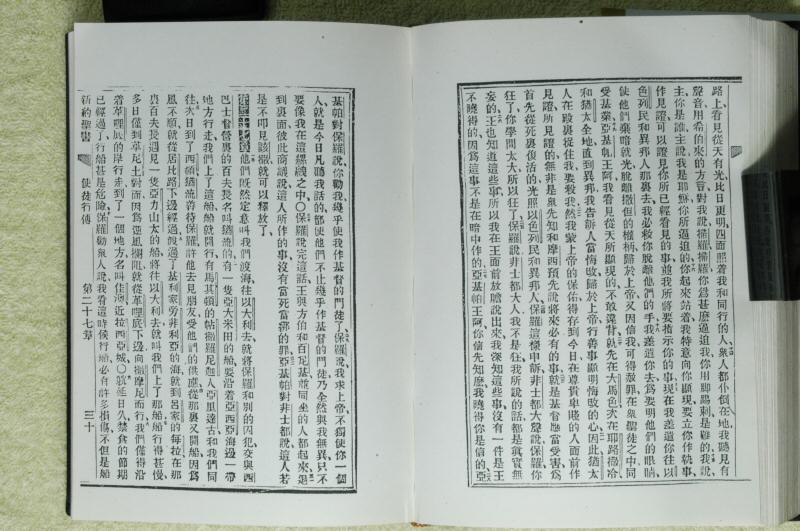 路上、看見從天有光、比日更明、四面照着我和同行的人、衆人都仆倒在地、我聽見有
聲音、用希伯來的方言、對我說、掃羅、掃羅、你爲甚麼逼迫我、你用脚踢刺是難的、我說、
主你是誰、主說、我是耶穌、你所逼迫的、你起來站着、我特意向你顯現、要立你作執事、
作見證、可以證見你所已經看見的事、並我所將要指示你的事、現在我差遣你往以
色列民和異邦人那裏去、我必救你脫離他們的手、我差遣你去、爲要明他們的眼睛、
使他們棄暗就光、脫離撒但的權柄、歸於上帝、又因信我、可得赦罪、在衆儒徒之中同
受基業、亞基帕王阿、我看見從天所顯現的、不敢違背、就先在大馬色、次在耶路撒冷
和猶太全地、直到異邦、我告訴人當悔改歸於上帝、行善事顯明悔改的心、因此猶太
人在殿裏捉住我要殺我、然我蒙上帝的保佑、得存到今日、在尊貴卑賤的人面前作
見證、所見證的無非是衆先知和摩西預先說將來必有的事、就是基督應當受害、爲
首先從死裏復活的、光照以色列民和異邦人、保羅這樣申訴、非士都大聲說、保羅你
狂了、你學問太大、所以狂了、保羅說、非士都大人、我不是狂、我所說的話、都是眞實無
妄的、王也知道這些事、所以我在王面前放膽說出來、我深知這些事、沒有一件是王
不曉得的、因爲這事不是在暗中作的、亞基帕王阿、你信先知麼、我曉得你是信的、亞
基帕對保羅說、你勸我、幾乎使我作基督的門徒了、保羅說、我求上帝、不獨使你一個
人、就是今日凡聽我話的、都使他們不止幾乎作基督的門徒、乃全然與我無異、只不
要像我在這縲絏之中〇保羅說完這話、王與方伯和百尼基、並同坐的人、都起來、退
到裏面、彼此商議說、這人所作的事、沒有當死當綁的罪、亞基帕對非士都說、這人若
是不叩見該撒、就可以釋放了、
第二十七章 他們旣然定意叫我們渡海往以大利去、就將保羅和別的囚犯、交與西
巴士督營裏的百夫長、名叫猶流的、有一隻亞大米田的船、要沿着亞西亞海邊一帶
地方行走、我們上了這船、船就開行、有馬其頓的帖撒羅尼迦人亞里達古、和我們同
往、次日到了西頓、猶流善待保羅、許他去見朋友、受他們的供應、從那裏又開船、因爲
風不順、就從居比路下邊經過、旣過了基利家旁非利亞的海、就到呂家的每拉、在那
裏百夫長遇見一隻亞力山太的船、將往以大利去、就叫我們上了那船、船行得甚慢、
多日僅到革尼土對面、因爲逆風攔阻、就從革哩底下邊向撒摩尼而行、我們僅得沿
着革哩底的岸行走、到了一個地方、名叫佳澳、近拉西亞城〇旣延日久、禁食的節期
已經過了、行船甚是危險、保羅勸衆人說、我看這時候行船、必有許多損傷、不但是船
新約聖書 使徒行傳 第二十七章 三十